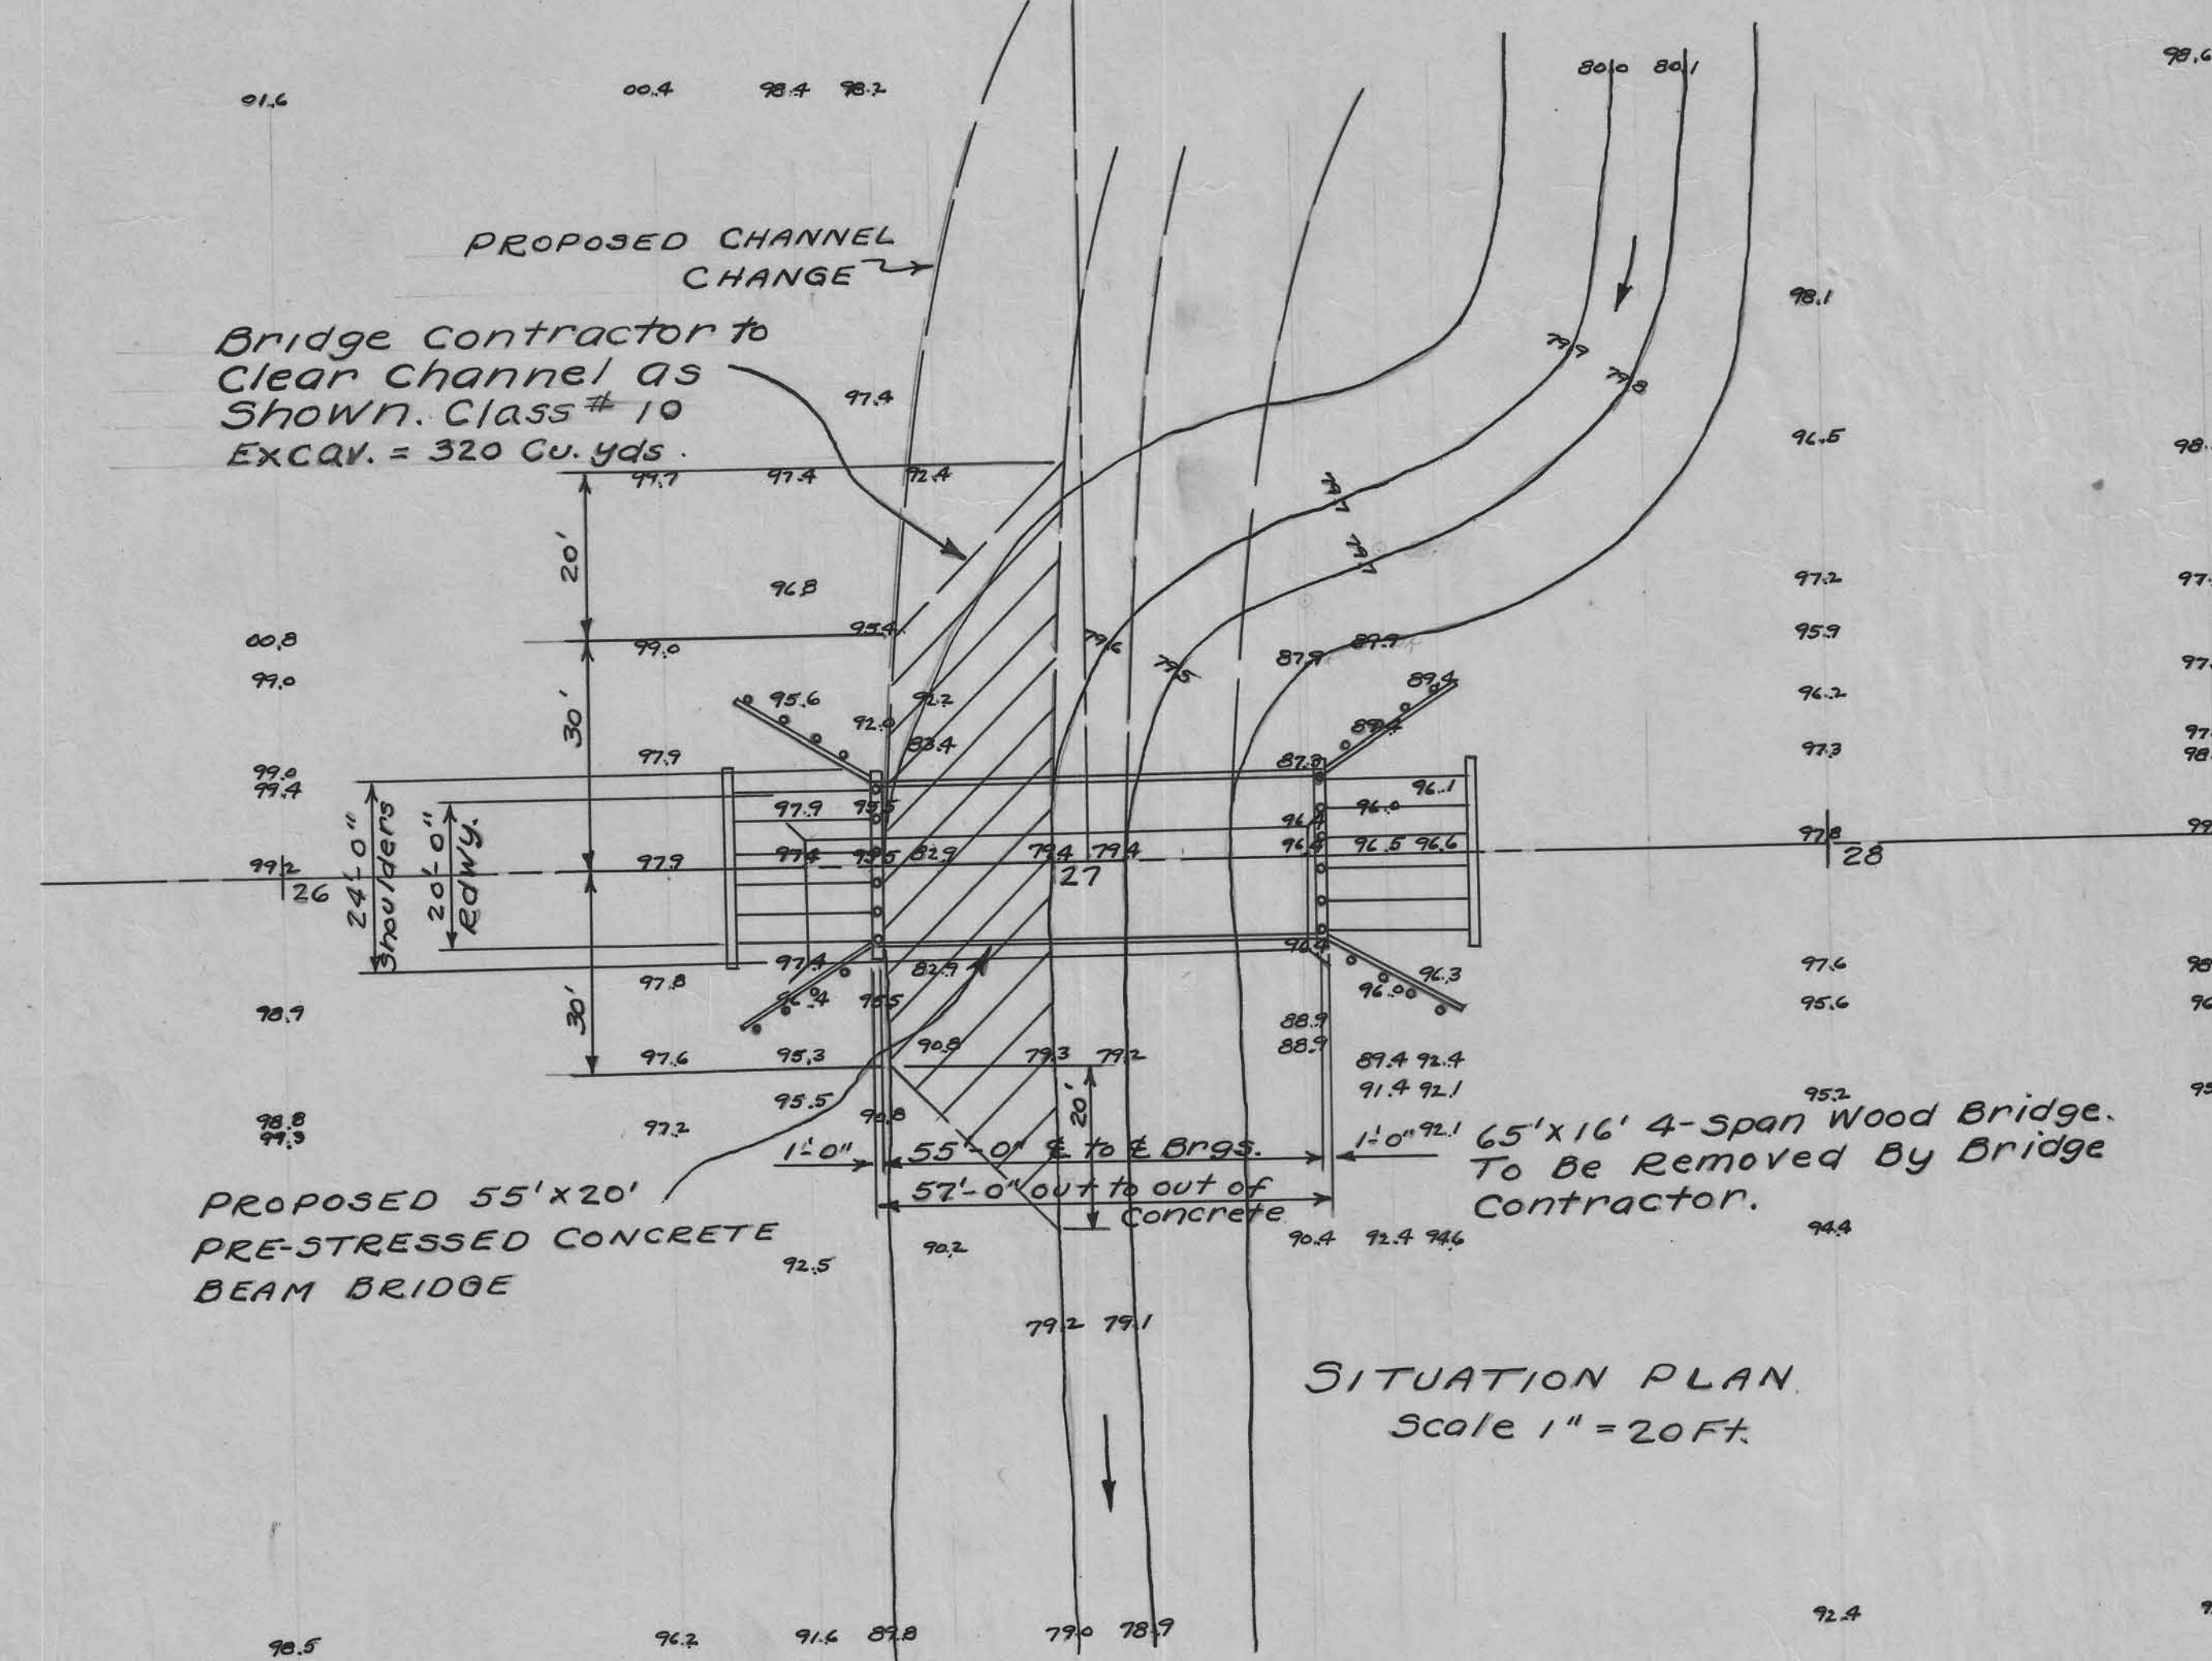 01.6 00.4 98.4 98.2 80.0 80.1 98.6
PROPOSED CHANNEL
CHANGE
98.1
Bridge Contractor to
Clear Channel as
Shown. Class # 10
Excav. = 320 Cu. yds.
79.9
79.8
97.4
96.5
99.7 97.4 92.4
79.7
79.7
20'
96.8
97.2
95.4
00.8 99.0 79.6 87.9 89.9 95.9
79.5
99.0 95.6 92.2 89.4 96.2
30'
92.0 83.4 89.4
97.9 87.9 97.3
99.0
99.4
96.1
97.9 95.5 96.0
96.4
24'-0"
Shoulders
20'-0"
Rdwy.
99.2 97.9 97.4 95.5 82.9 79.4 79.4 96.4 96.5 96.6 97.8
26 27 28
96.4
97.8 97.4 82.9 96.3 97.6
96.4 95.5 96.0 95.6
98.9
30'
88.9
88.9
97.6 95.3 90.8 79.3 79.2 89.4 92.4
91.4 92.1
95.5 90.8 20' 95.2
98.8
99.3
97.2 92.1
1'-0" 55'-0" ℄ to ℄ Brgs. 1'-0"
57'-0" out to out of
Concrete
65' X 16' 4-Span Wood Bridge.
To Be Removed By Bridge
Contractor.
PROPOSED 55' X 20'
PRE-STRESSED CONCRETE
BEAM BRIDGE
92.5 90.2 90.4 92.4 94.6 94.4
79.2 79.1
SITUATION PLAN.
Scale 1" = 20 Ft.
98.5 96.2 91.6 89.8 79.0 78.9 92.4